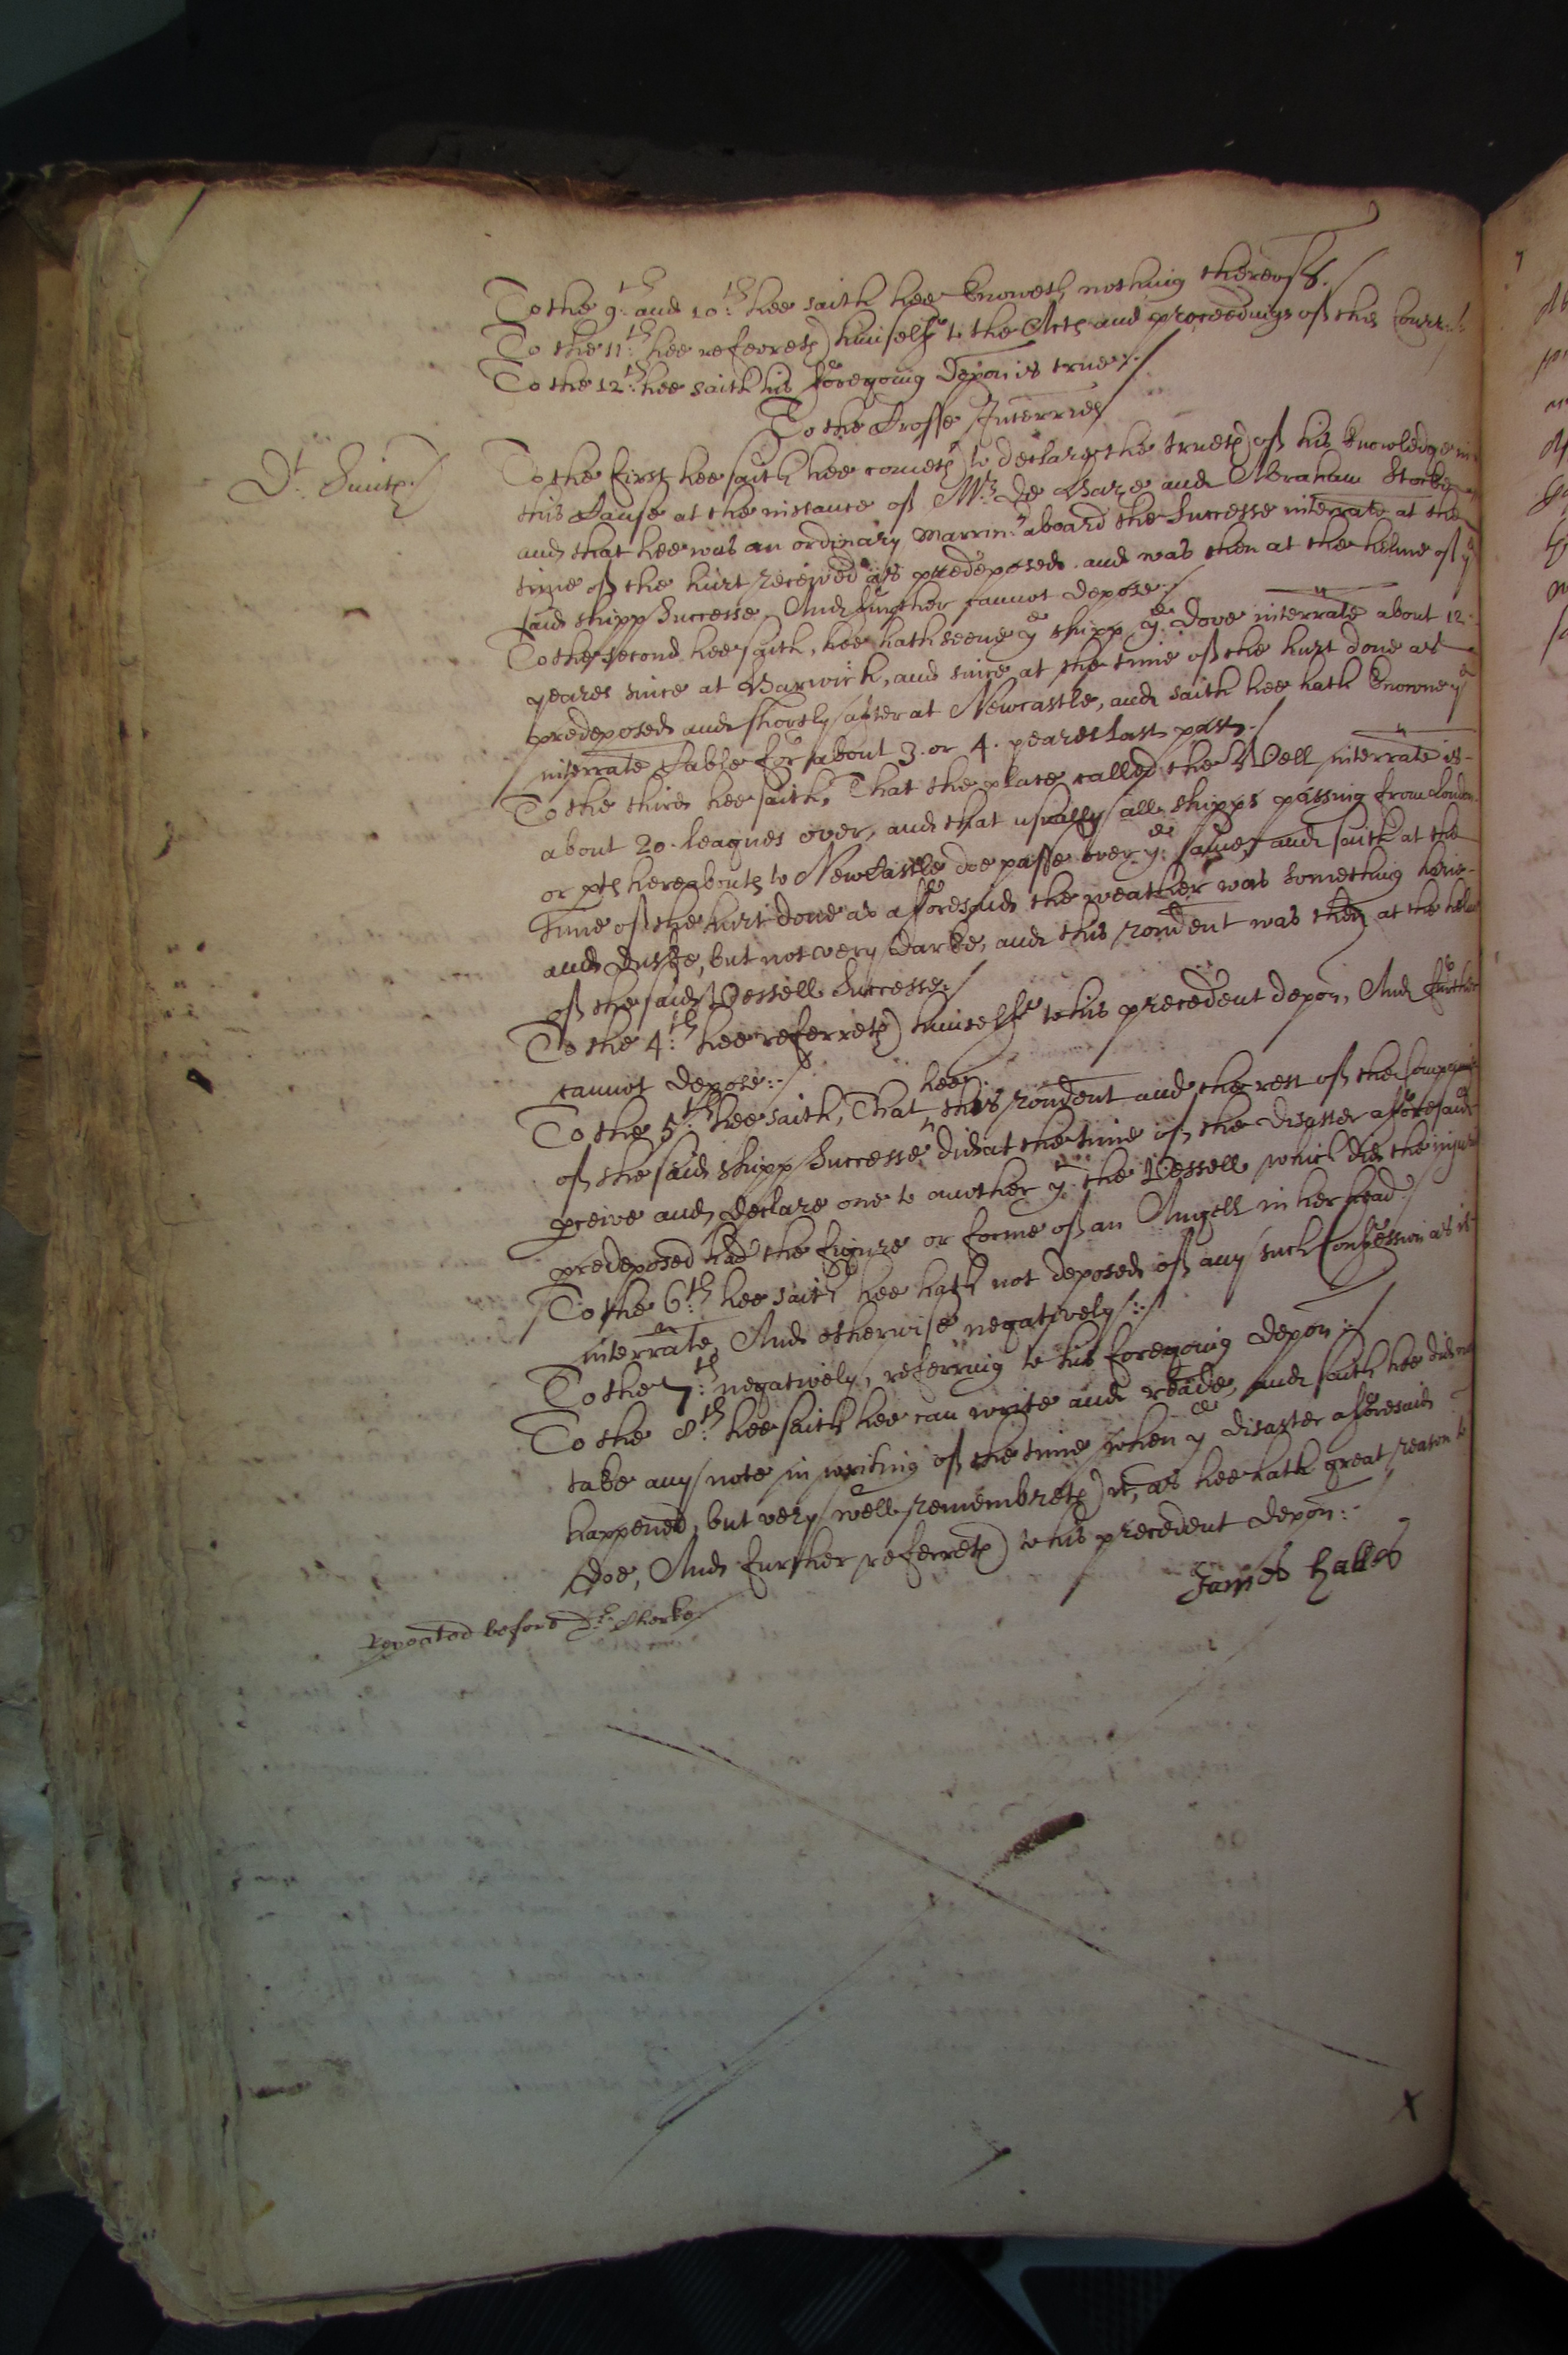 To the 9:th and 10:th hee saith hee knoweth nothing thereof./
To the 11:th hee referreth himselfe to the Acts and proceedings of this Court:/
To the 12:th hee saith his foregoing depon is true:/
To the Crosse Interries
To the first hee saith hee cometh to declare the trueth of his knowledge in
this Cause at the instance of Mr De Bare and Abraham
and that hee was an ordinary marrinr aboard the Successe interrate at the
time of the hurt received as predeposed and was then at the helme of ye
said shipp Successe, And further cannot depose./
To the second hee saith, hee hath seene ye shipp ye Dove interrate about 12.
yeares since at Barwick, and since at the time of the hurt done as
predeposed and shortly after at Newcastle, and saith hee hath knowne ye
interrate Cable for about 3. or 4. yeares last past./
To the third hee saith, That the place called the Well interrate is
about 20. leagues over, and that usually all shipps passing from London
or pts hereabouts to NewCastle doe passe over ye same, and saith at the
time of the hurt done as afforesaid the weather was something
and duske, but not very darke, and this rondent was then at the helme
of the said Vessell Successe./
To the 4:th hee referreth himselfe to his precedent depon, And further
cannot depose:/
To the 5:th hee saith, That hee this rondent and the rest of the Company
of the said shipp Successe did at the time of the disaster afforesaid
pceive and declare one to another yt the Vessell which did the injurie
predeposed had the figure or forme of an Angell in her head./
To the 6:th hee saith hee hath not deposed of any such Confession as is
interrate, And otherwise negatively:/
To the 7:th negatively, referring to his foregoing depon:/
To the 8:th hee saith hee can write and reade, and saith hee did not
take any note in writing of the time when ye disaster afforesaid
happened, but very well remembreth it, as hee hath great reason to
doe, And further referreth to his precedent depon:
James
Repeated before Dr. Clerke